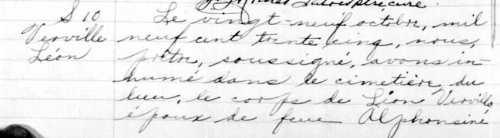 S 10
Verville
Léon
Le vingt-neuf octobre, mil
neuf cent trente cinq, nous,
prêtre, soussigné, avons in-
humé dans le cimetière du
lieu, le corps de Léon Verville
époux de feue Alphonsine